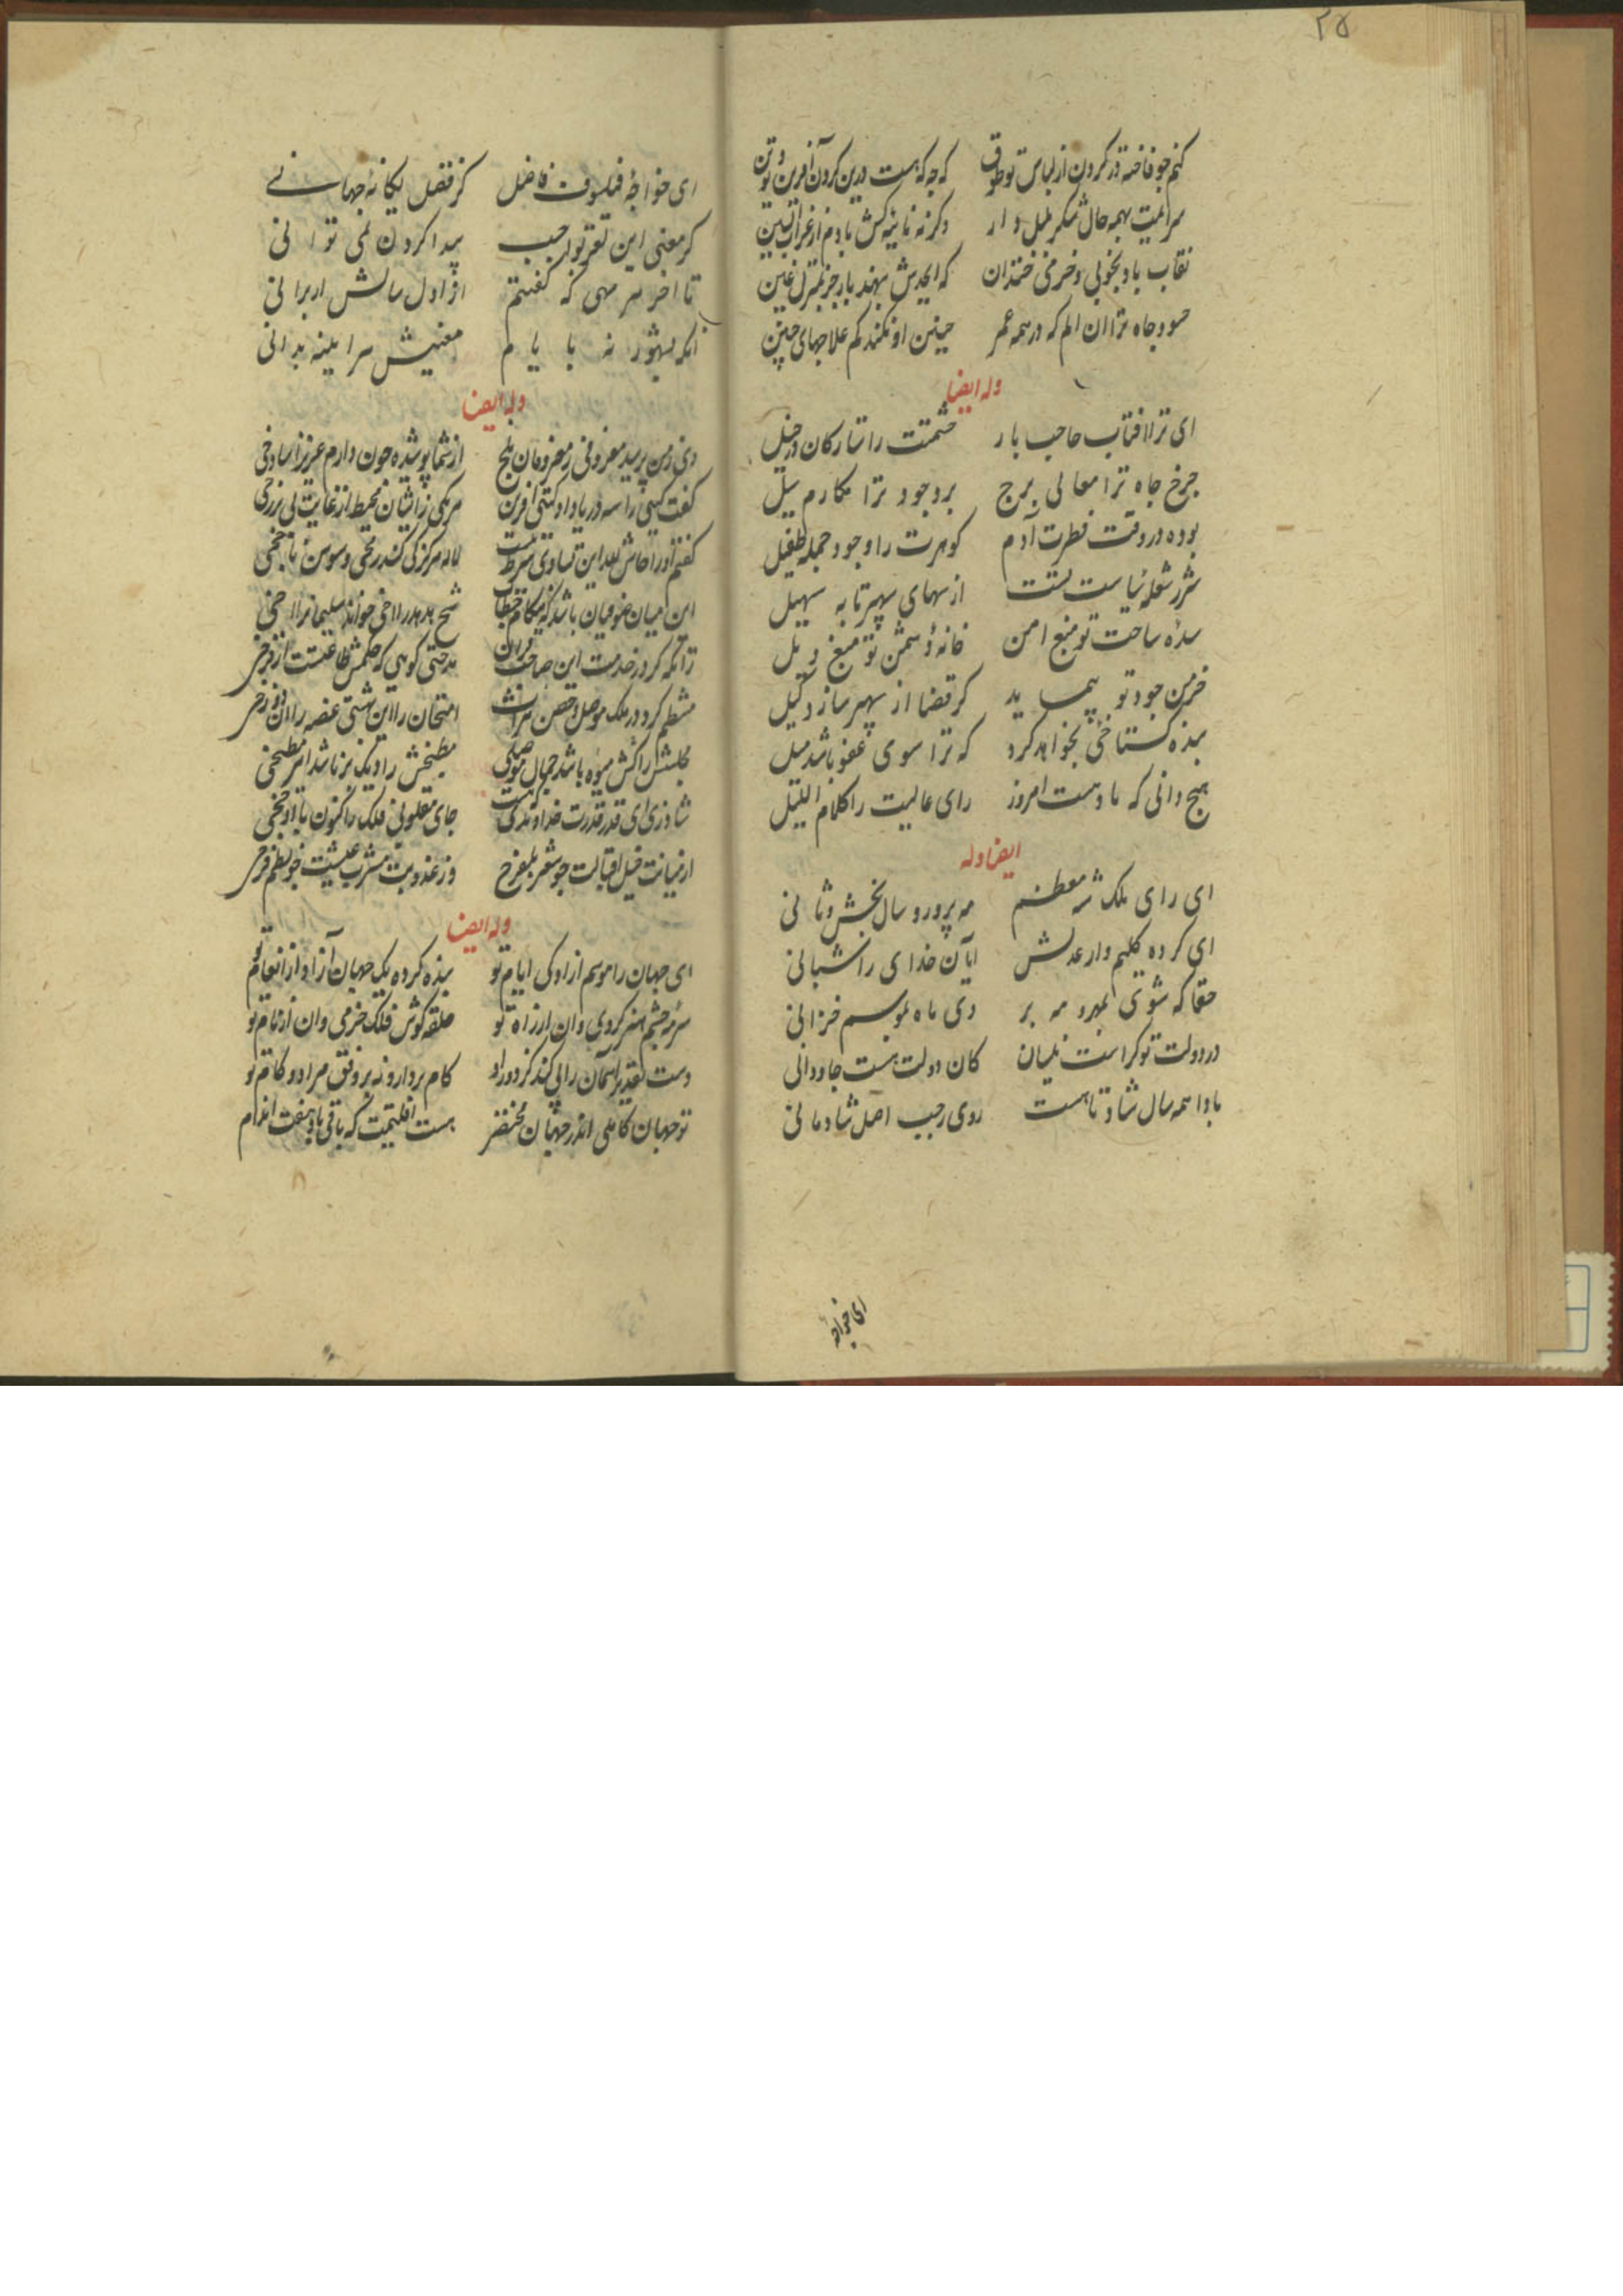 ۲۵
کنم چو فاخته در کردن از لباس تو طوق که چه که هست درین کردون آفرین وتون
سرایمت بهمه حال شکر بلبل وار وکر نه نایبه کش بادم از غراب تبین
نقاب باد بخوبی وخرمی خندان
حسود جاه ترا ان الم که در همه عمر چنین او نکند کم علاجهای حنین
وله ایضا
ای ترا افتاب حاجب بار حشمتت را ستارکان در خیل
چرخ جاه ترا معالی برج بر وجود ترا مکارم سیل
بوده در وقت فطرت آدم کوهرت را وجود جمله طفیل
شرر شعله سیاست تست از سهای سپهر تا به سهیل
سده ساحت تو منبع امن خانه دشمن تو منبع ویل
خرمن جود تو پیماید کر قضا از سپهر سازد کیل
بنده کستاخی بخواهد کرد که ترا سوی عفو باشد میل
هیچ دانی که یاد هست امروز رای عالیت را کلام اللیل
ایضا وله
ای رای ملک شه معظم مه پرور و سال بخش وثانی
ای کرده کلیم وار عدلش آیان خدای را شبانی
حقا که شوی بهرمه بر دی ماه بموسم خزانی
در دولت تو کراست نیسان کان دولت هست جاودانی
بادا همه سال شاد تا هست روی رجب اصل شادمانی
ای خواجه
ای خواجه فیلسوف فاضل کز فضل یکانه جهانی
کر معنی این لغز تو احب پیدا کردن نمی توانی
تا اخر سر مهی که کفتم از اول سالش ار برانی
انکه بشهور نه بیایم معنیش هر اینه بدانی
وله ایضا
دی زمن پرسید معروفی ز معروفان بلخ از شما پوشیده چون دارم عزیز شادخی
کفت کیتی را سه دریا داد کیتی افرین هر یکی زایشان محیط از غایت بی برزخی
کفتم اورا حاش لله این تساوی شرط نیست لاله هرکز کی کند رمحی وسوسن ناچخی
این میان صوفیان باشد که هنکام خطاب شیخ هدهد را اخی خواند سلیمان را اخی
زانکه کر در خدمت این صاحب قران مدحتی کوهی که حکمش طاعتست از فرخی
منتظم کردد در ملک موصل وحصن هرات امتحان را این بهشتی غصه را ان دوزخی
مجلسش را کش میوه باشد جمال موصلی مطبخش را دیک پز باشد امیر مطبخی
شاد زی ای قدر قدرت خداوندی که هست جای مقلوبی فلک را کنون با اوجخی
از نباتت خیل اقبالت چو شعر بلفرج وز عذوبت مشرب عیشت چو نظم فرخی
وله ایضا
ای جهان را موسم ازادکی ایام تو بنده کرده یک جهان آزاد از انعام تو
سرمه چشم هنر کردی وان از راه تو حلقه کوش فلک جرمی وان از نام تو
دست تقدیر اسمان را پی کند کر دور او کام بردارد نه بر وفق مراد وکام تو
تو جهان کاملی اندر جهان مختصر هست اقلیمیت که باقی باد هفت اندام